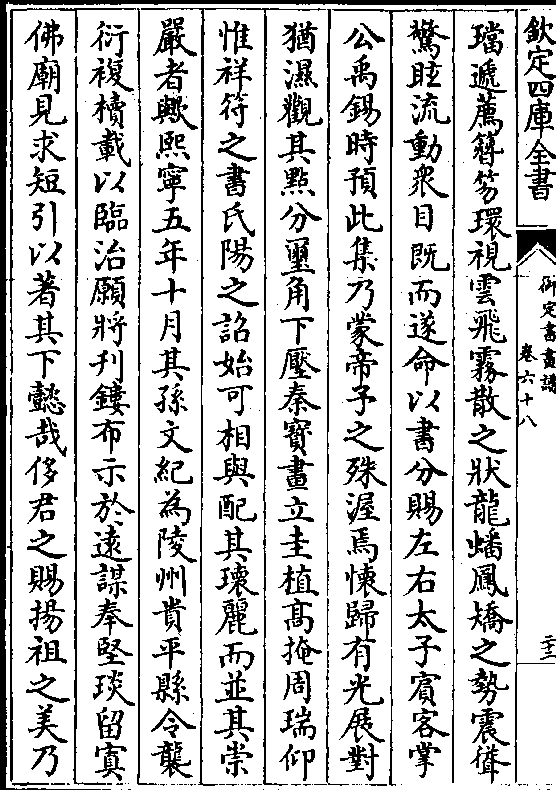 欽定四庫全書
御定書畫譜
卷六十八
二十二
璫遞薦簪笏環視雲飛霧散之狀龍蟠鳳矯之勢震聳
驚眩流動衆目既而遂命以書分賜左右太子賓客掌
公禹錫時預此集乃蒙帝予之殊渥焉懐歸有光展對
猶濕觀其㸃分璽角下壓秦寳畫立圭植髙掩周瑞仰
惟祥符之書氏陽之詔始可相與配其瓌麗而並其崇
嚴者歟熙寧五年十月其孫文紀為陵州貴平縣令襲
衍複櫝載以臨治願將刋鏤布示於逺謀奉堅琰留寘
佛廟見求短引以著其下懿哉侈君之賜揚祖之美乃